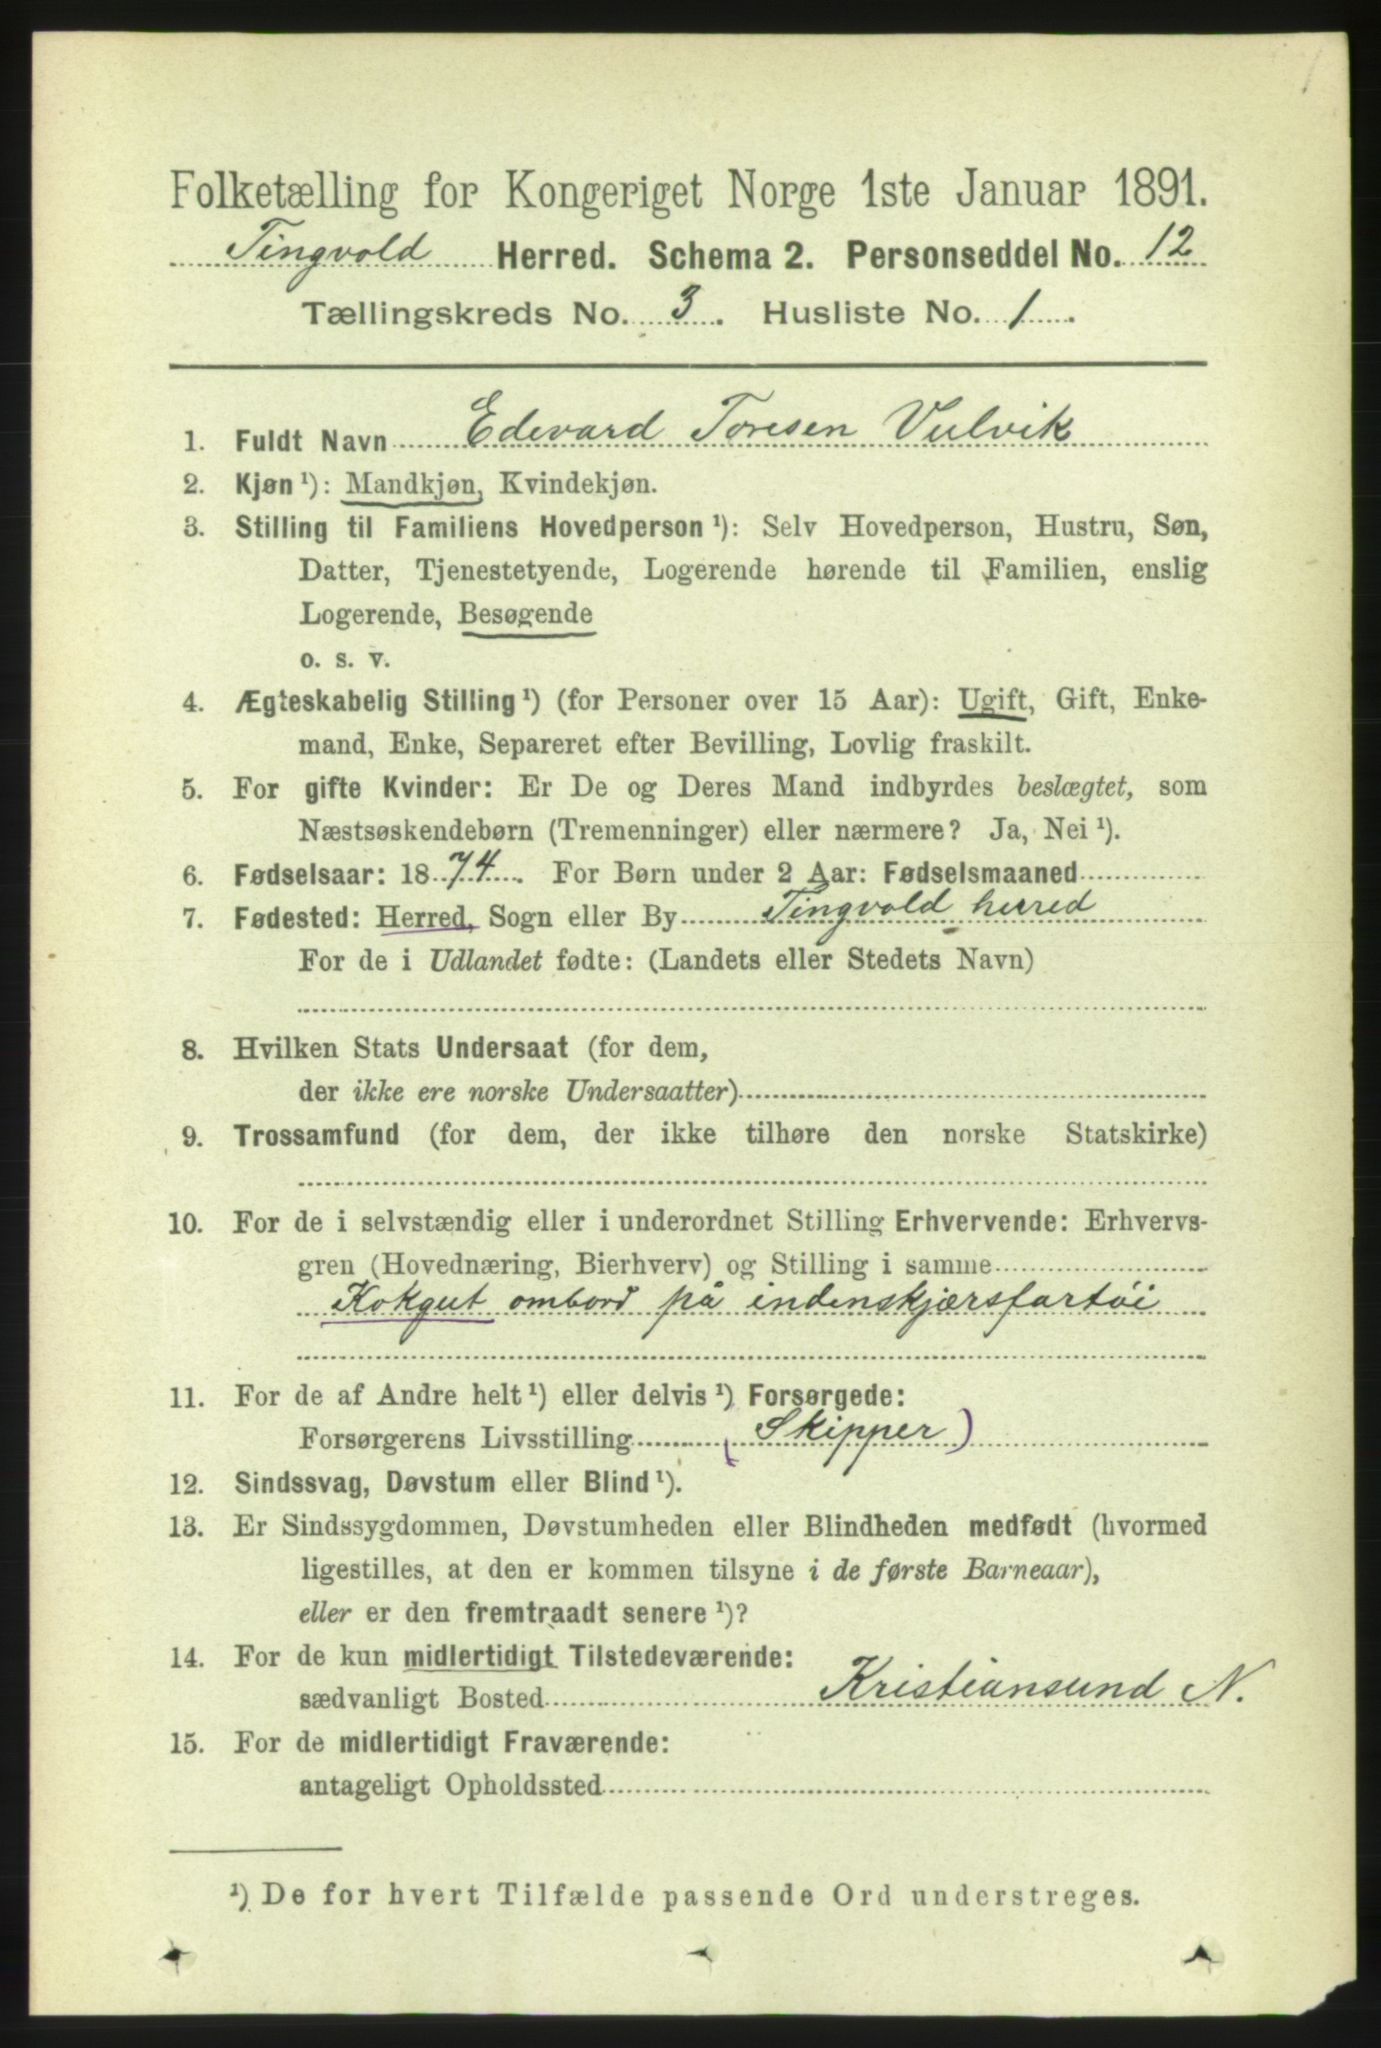 Folketælling for Kongeriget Norge 1ste Januar 1891.
Tingvold Herred. Schema 2. Personseddel No. 12
Tællingskreds No. 3. Husliste No. 1.
1. Fuldt Navn Edevard Toresen Vulvik
2. Kjøn ¹): Mandkjøn, Kvindekjøn.
3. Stilling til Familiens Hovedperson ¹): Selv Hovedperson, Hustru, Søn,
Datter, Tjenestetyende, Logerende hørende til Familien, enslig
Logerende, Besøgende
o. s. v.
4. Ægteskabelig Stilling ¹) (for Personer over 15 Aar): Ugift, Gift, Enke-
mand, Enke, Separeret efter Bevilling, Lovlig fraskilt.
5. For gifte Kvinder: Er De og Deres Mand indbyrdes beslægtet, som
Næstsøskendebørn (Tremenninger) eller nærmere? Ja, Nei ¹).
6. Fødselsaar: 1874. For Børn under 2 Aar: Fødselsmaaned
7. Fødested: Herred, Sogn eller By Tingvold herred
For de i Udlandet fødte: (Landets eller Stedets Navn)
8. Hvilken Stats Undersaat (for dem,
der ikke ere norske Undersaatter)
9. Trossamfund (for dem, der ikke tilhøre den norske Statskirke)
10. For de i selvstændig eller i underordnet Stilling Erhvervende: Erhvervs-
gren (Hovednæring, Bierhverv) og Stilling i samme
Kokgut ombord på indenskjærsfartøi
11. For de af Andre helt ¹) eller delvis ¹) Forsørgede:
Forsørgerens Livsstilling (Skipper)
12. Sindssvag, Døvstum eller Blind ¹).
13. Er Sindssygdommen, Døvstumheden eller Blindheden medfødt (hvormed
ligestilles, at den er kommen tilsyne i de første Barneaar),
eller er den fremtraadt senere ¹)?
14. For de kun midlertidigt Tilstedeværende:
sædvanligt Bosted Kristiansund N.
15. For de midlertidigt Fraværende:
antageligt Opholdssted
¹) De for hvert Tilfælde passende Ord understreges.